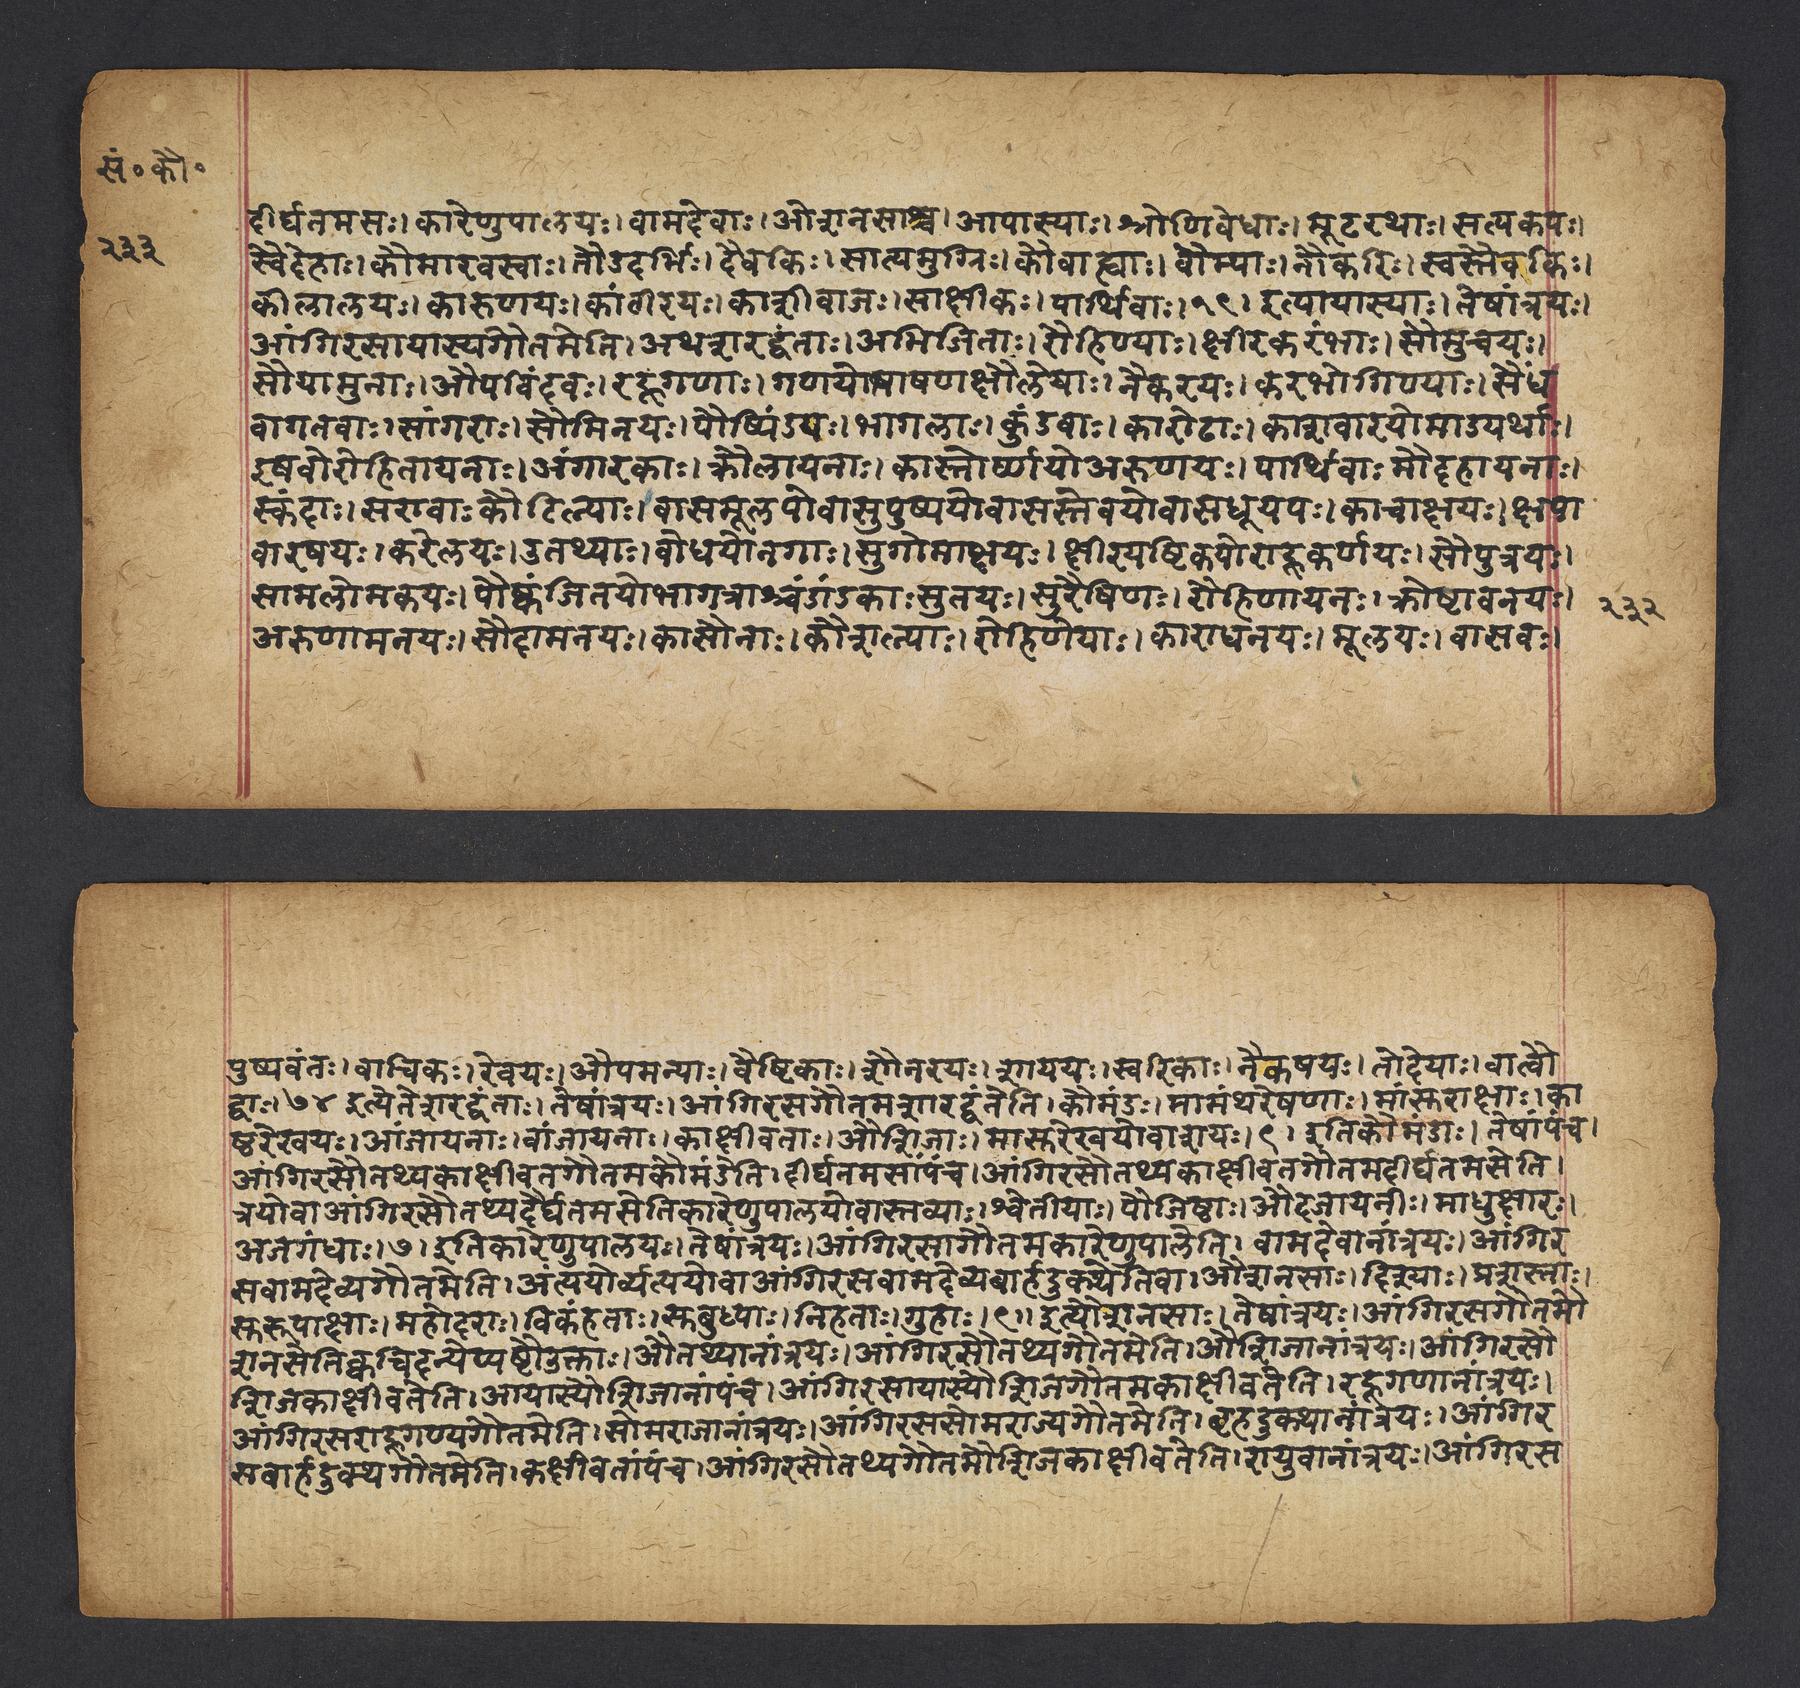 सं॰कौ॰
२३३
दीर्घतमसः। कारेणुपालयः। वामदेवाः। औशनसाश्च। आपास्याः। श्रोणिवेधाः। मूटरथाः। सत्यकपः।
स्वैदेहाः। कौमारवस्वाः। तौडदर्भिः। दैवकिः। सात्यमुग्निः। कौवाह्याः। वौम्याः। नौकरिः। स्वस्तैवकिः।
कीलालयः। कारुणयः। कांठीरयः। काशीवाजः। साक्षीकः। पार्थिवाः। १९। इत्यायास्याः। तेषांत्रयः।
आंगिरसायास्यगौतमेति। अथशरद्वंताः। अभिजिताः। रौहिण्याः। क्षीरकरंभाः। सौमुच्चयः।
सौयामुनाः। औपबिंदवः। रहूगणाः। गणयोमाषणक्षौलेयाः। नैकरयः। करभोगिण्याः। सैंध
वागतवाः। सांगराः। सौमिनयः। पौष्यिंडयः। भागलाः। कुंडवाः। कारोटाः। काशवारयोमाडयर्थाः।
इषवोरोहितायनाः। अंगारकाः। क्रौलायनाः। कास्तौर्ष्णायोअरुणयः। पार्थिवाः मौदृहायनाः।
स्कंदाः। सरावाः कौटिल्याः। वासमूलपोवासुपुष्ययोवासस्तेवयोवासधूयपः। काचाक्षयः। क्षपा
वारषयः। करेलयः। उतथ्याः। वोधयोनगाः। सुगोमाक्षयः। क्षीरयष्टिकयोराहूकर्णयः। सौपुत्रयः।
सामलोमकयः। पौष्कंजितयोभागत्राश्चंडांडकाः सुतयः। सुरैषिणः। रौहिणायनः। क्रोष्टावनयः।
२३२
अरुणामनयः। सौदामनयः। कासोनाः। कौशल्याः। रोहिणेयाः। काराधनयः। मूलयः। वासवः।
पुष्यवंतः। वाचिकः। रेवयः। औपमन्याः। वैष्टिकाः। शैनरयः। शययः। स्वरिकाः। नैकषयः। तोदेयाः। वाल्वौ
द्वाः। ७४ इत्येतेशरद्वंताः। तेषांत्रयः। आंगिरसगौतमशारद्वंतेति। कौमंडः। मामंथरेषणाः। मांस्तराक्षाः। का
ष्ठरेखयः। आंजायनाः। वांजायनाः। काक्षीवताः। औशिजाः। मास्तरेखयोवाशयः। ९। इतिकौमंडाः। तेषांपंच।
आंगिरसौतथ्यकाक्षीवतगौतमकौमंडेति। दीर्घतमसांपंच। आंगिरसौतथ्यकाक्षीवतगौतमदीर्घतमसेति।
त्रयोवाआंगिरसौतथ्यदैर्घतमसेतिकारेणुपालयोवास्तव्याः। श्वेतीयाः। पौजिष्ठाः। औदजायनीः। माधुक्षारः।
अजगंधाः। ७। इतिकारेणुपालयः। तेषांत्रयः। आंगिरसागौतमकारेणुपालेति। वामदेवानांत्रयः। आंगिर
सवामदेव्यगौतमेति। अंत्ययोर्व्यत्ययोवाआंगिरसवामदेव्यबार्हदुक्थ्येतिवा। औशनसाः। दिश्याः। प्रशस्ताः।
स्तरूपाक्षाः। महोदराः। विकंहताः। स्तबुध्याः। निहताः। गुहाः। ९। इत्यौशनसाः। तेषांत्रयः। आंगिरसगौतमौ
शनसेतिक्वचिदन्येप्यष्टौउक्ताः। औतथ्यानांत्रयः। आंगिरसौतथ्यगौतमेति। औशिजानांत्रयः। आंगिरसौ
शिजकाक्षीवतेति। आयास्यौशिजानांपंच। आंगिरसायास्यौशिजगौतमकाक्षीवतेति। रहूगणानांत्रयः।
आंगिरसराहूगण्यगौतमेति। सोमराजानांत्रयः। आंगिरससोमराज्यगौतमेति। बृहदुक्थानांत्रयः। आंगिर
सबार्हदुक्थ्यगौतमेति। कक्षीवतांपंच। आंगिरसौतथ्यगौतमौशिजकाक्षीवतेति। रायुवानांत्रयः। आंगिरस